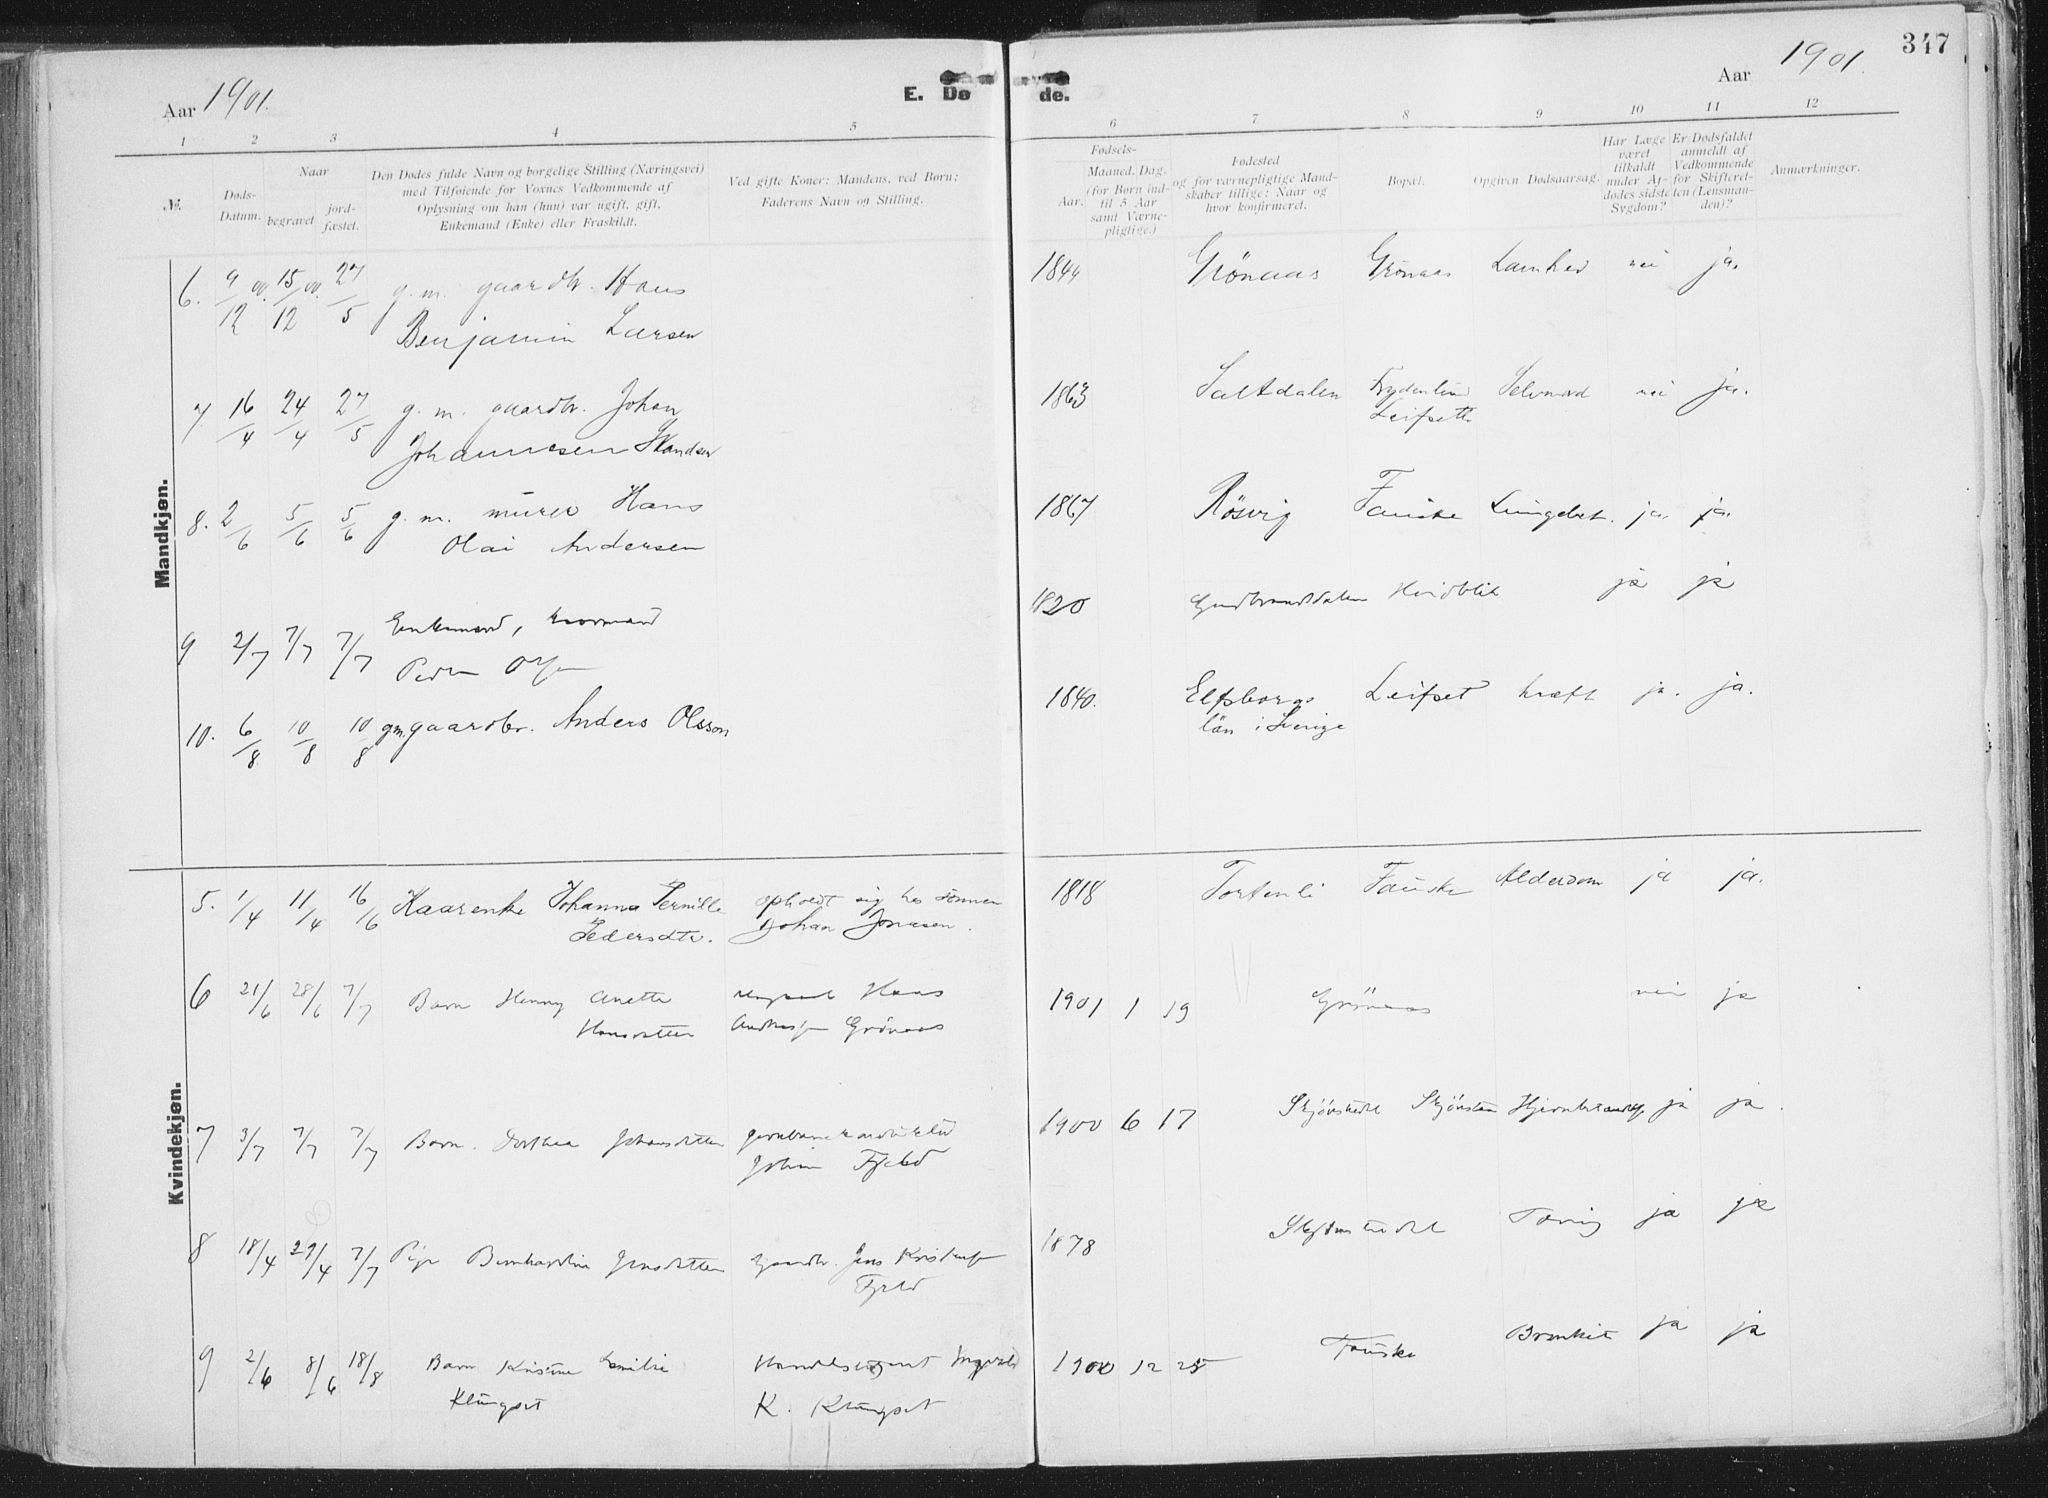 347
Aar 1901.
E. Dø de.
Aar 1901.
1 2 3 4 5 6 7 8 9 10 11 12
№.
Døds-
Datum.
Naar
begravet
jord-
fæstet.
Den Dødes fulde Navn og borgelige Stilling (Næringsvei)
med Tilføiende for Voxnes Vedkommende af
Oplysning om han (hun) var ugift, gift,
Enkemand (Enke) eller Fraskildt.
Ved gifte Koner: Mandens, ved Børn:
Faderens Navn og Stilling.
Fødsels-
Aar.
Maaned. Dag.
(for Børn ind-
til 5 Aar
samt Værne-
pligtige.)
Fødested
og for værnepligtige Mand-
skaber tillige: Naar og
hvor konfirmeret.
Bopæl.
Opgiven Dødsaarsag.
Har Læge
været
tilkaldt
under Af-
dødes sidste
Sygdom?
Er Dødsfaldet
anmeldt af
Vedkommende
for Skifteret-
ten (Lensman-
den)?
Anmærkninger.
Mandkjøn.
6. 9/12 00. 15/12 00. 27/5 g. m. gaardbr. Hans 1844 Grönaas Grönaas nei ja.
Benjamin Larsen
7 16/4 24/4 27/5 g. m. gaardbr. Johan 1863 Saltdalen Frydenlund Selvmord nei ja.
Johannesen Leifsett
8. 2/6 5/6 5/6 g. m. murer Hans 1867 Rösvig Fauske Lungebet. ja. ja.
Olai Andersen
9 2/7 7/7 7/7 Enkemand, 1820 Gudbrandsdalen Hvidblik ja ja
Peder
10. 6/8 10/8 10/8 gm. gaardbr. Anders Olsson 1840. Elfsborgs Leifset kræft ja. ja.
län i Sverige
Kvindekjøn.
5. 1/4 11/4 16/6 Kaarenke Johanna Pernille opholdt sig hos sønnen 1818 Tortenli Fauske Alderdom ja ja.
Pedersdtr. Johan Jonasen.
6 21/6 28/6 7/7 Barn Henny Anette Hans 1901 1 19 Grönaas nei ja
Hansdatter Grönaas
7 3/7 7/7 7/7 Barn. Dorthea Johansdatter 1900 6 17 Skjönstuedt ja ja.
Johan Fjeld
8 18/4 29/4 7/7 Pige Bernhardine Jensdatter Gaardbr. Jens 1878 Tæring ja ja
Fjeld
9 2/6 8/6 18/8 Barn Kristine Emilie Handelsagent Ingvald 1900 12 25 Fauske Bronkit ja ja
Klungset K. Klungset